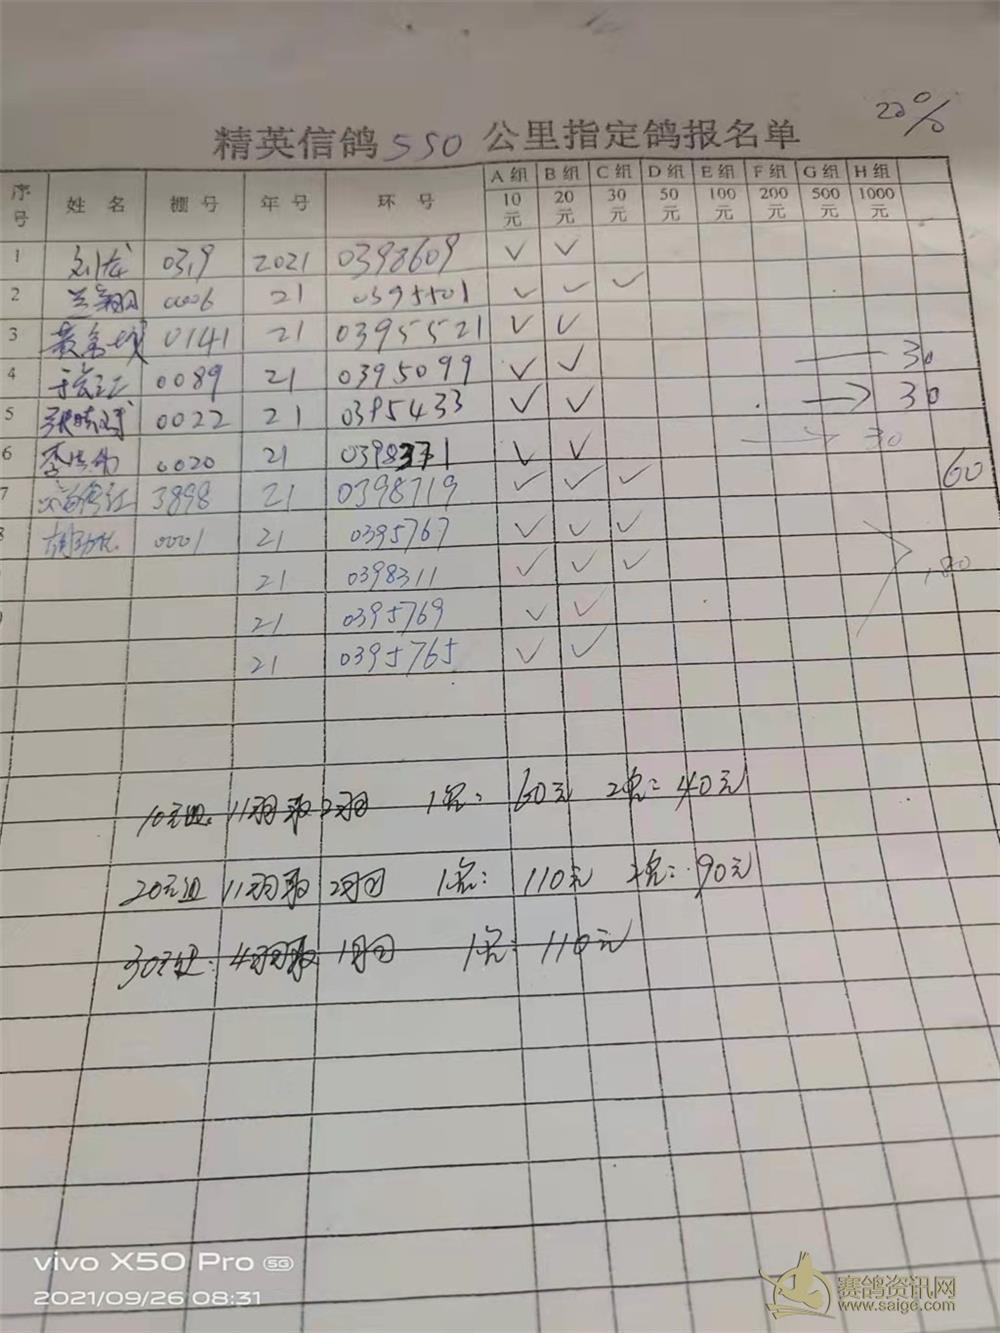 20%
精英信鸽550公里指定鸽报名单
序号 姓 名 棚 号 年 号 环 号 A组 10元 B组 20元 C组 30元 D组 50元 E组 100元 F组 200元 G组 500元 H组 1000元
1 刘龙 0319 2021 0398609 ✓ ✓
2 兰翔 0006 21 0395501 ✓ ✓ ✓
3 0141 21 0395521 ✓ ✓
4 0089 21 0395099 ✓ ✓ — 30
5 0022 21 0395433 ✓ ✓ → 30
6 0020 21 0398371 ✓ ✓ → 30
7 3898 21 0398719 ✓ ✓ ✓ 60
8 0001 21 0395767 ✓ ✓ ✓
21 0398311 ✓ ✓ ✓ 180
21 0395769 ✓ ✓
21 0395765 ✓ ✓
10元组 11羽取2羽 1名: 60元 2名: 40元
20元组 11羽取2羽 1名: 110元 2名: 90元
30元组: 4羽取1羽 1名: 110元
vivo X50 Pro 5G
2021/09/26 08:31
赛鸽资讯网
www.saige.com